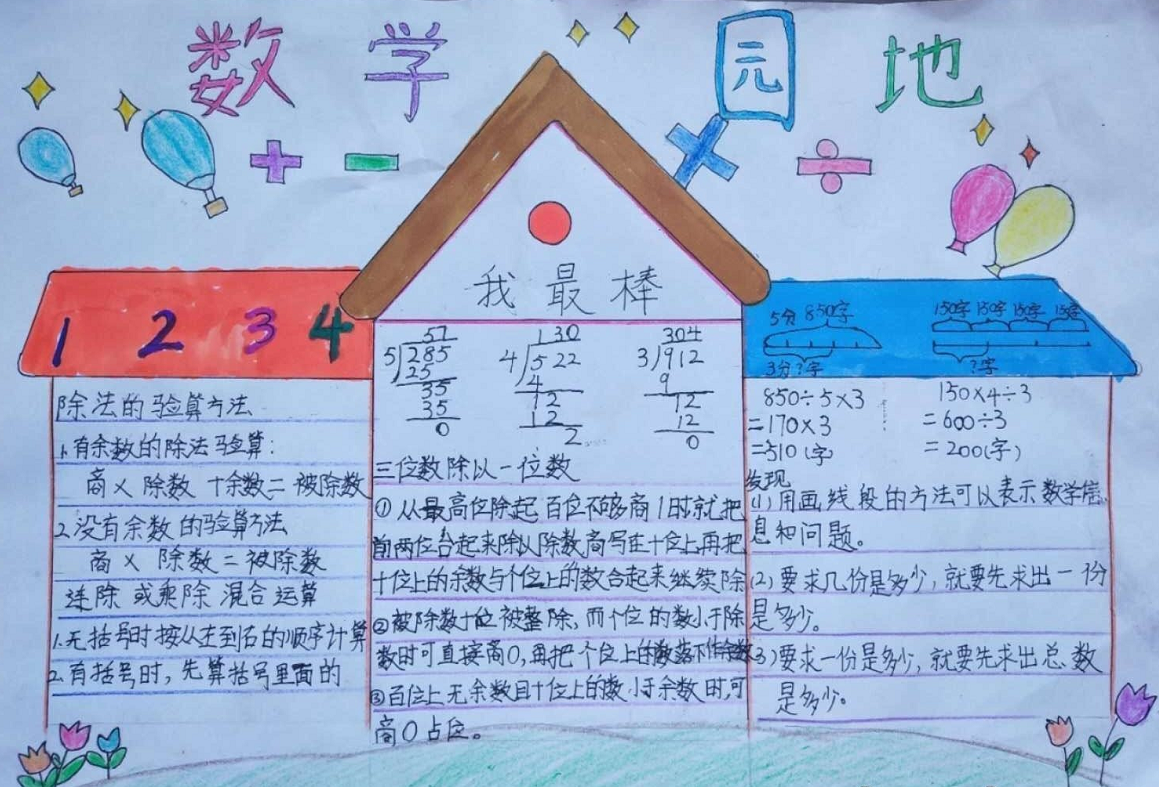 数学园地
+ - × ÷
1 2 3 4
除法的验算方法
1.有余数的除法验算:
商×除数+余数=被除数
2.没有余数的验算方法
商×除数=被除数
连除或乘除混合运算
1.无括号时按从左到右的顺序计算
2.有括号时,先算括号里面的
我最棒
57
5)285
25
35
35
0
130
4)522
4
12
12
2
304
3)912
9
12
12
0
三位数除以一位数
①从最高位除起百位不够商1时就把
前两位合起来除以除数商写在十位上再把
十位上的余数与个位上的数合起来继续除
②被除数十位被整除,而个位的数小于除
数时可直接商0,再把个位上的数落下作余数
③百位上无余数且十位上的数小于余数时,可
商0占位。
5分 850字
3分?字
150字 150字 150字 150字
?字
850÷5×3
=170×3
=510(字)
150×4÷3
=600÷3
=200(字)
发现
(1)用画线段的方法可以表示数学信
息和问题。
(2)要求几份是多少,就要先求出一份
是多少。
(3)要求一份是多少,就要先求出总数
是多少。